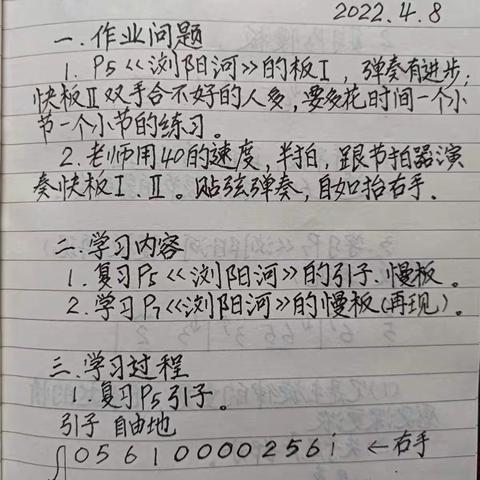 2022.4.8
一.作业问题
1. P5《浏阳河》的板I，弹奏有进步；
快板Ⅱ双手合不好的人多，要多花时间一个小
节一个小节的练习。
2.老师用40的速度，半拍，跟节拍器演
奏快板Ⅰ.Ⅱ。贴弦弹奏，自如抬右手.
二.学习内容
1.复习P5《浏阳河》的引子.慢板。
2.学习P7《浏阳河》的慢板(再现)。
三.学习过程
1.复习P5引子。
引子 自由地
0 5 6 1 0 0 0 0 2 5 6 i ←右手